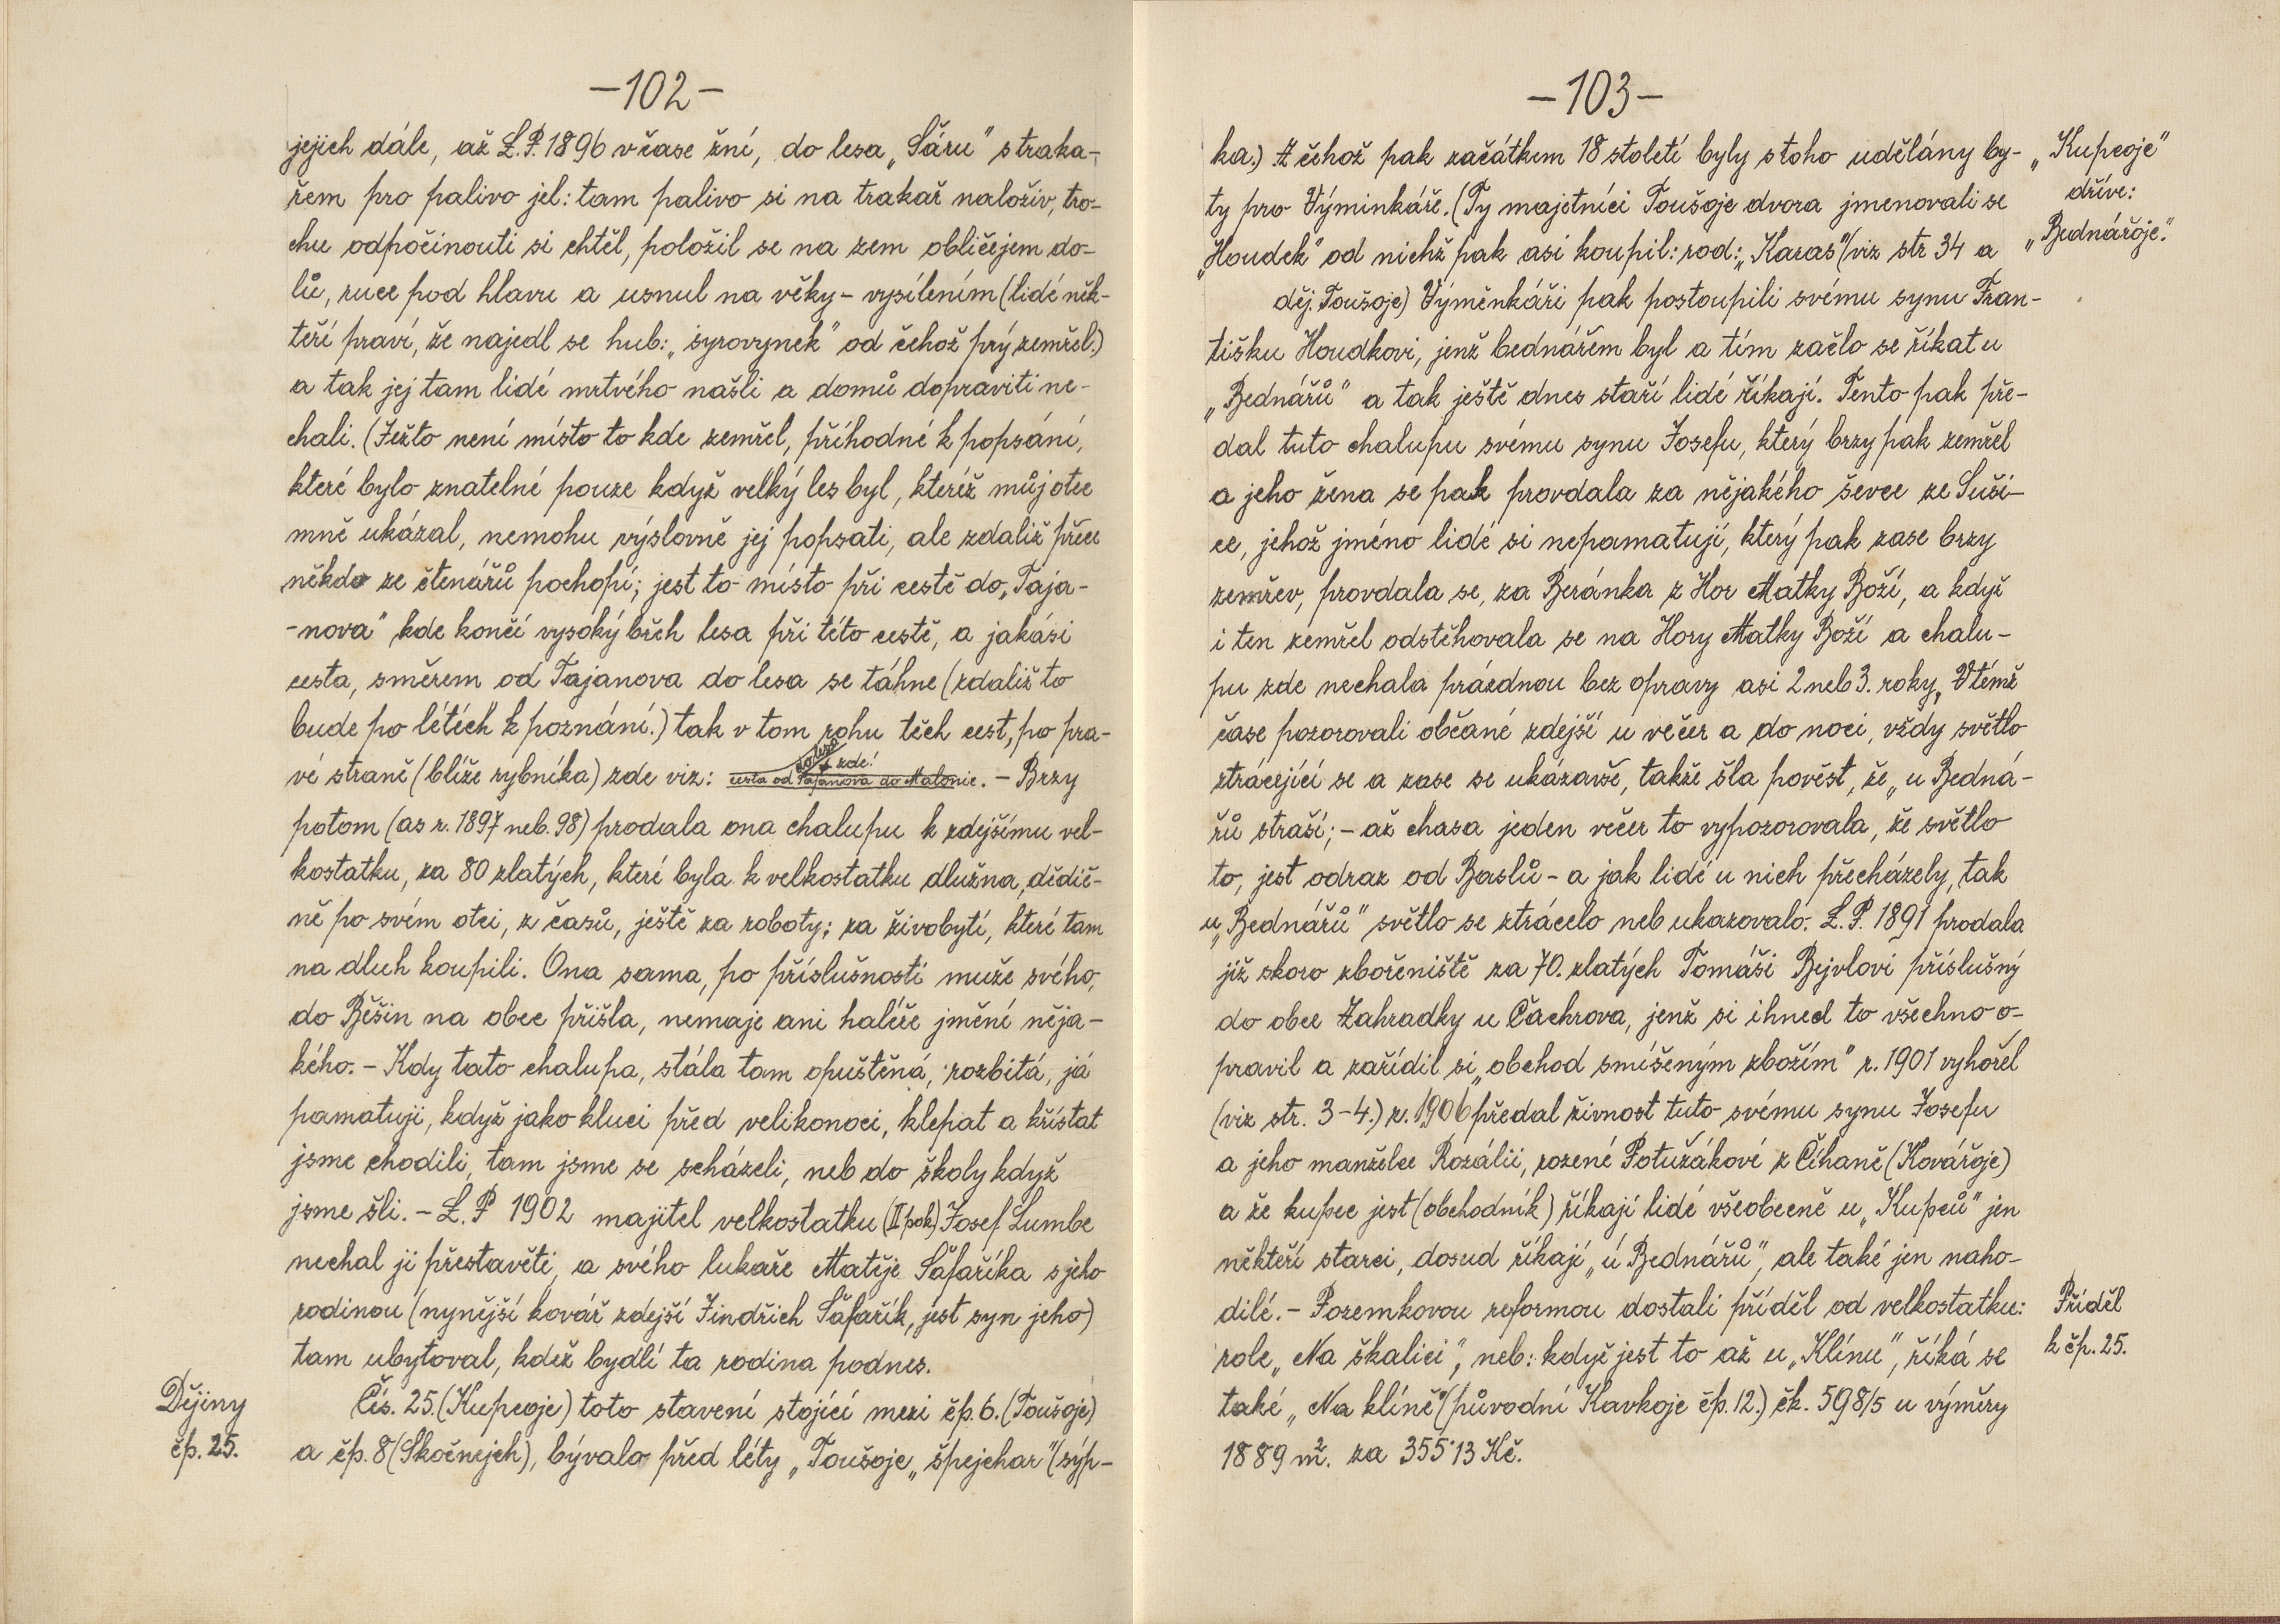 -102-
jejich dále, až L.P. 1896 v čase žní, do lesa „Sáru" s traka-
řem pro palivo jel: tam palivo si na trakař naloživ, tro-
chu odpočinouti si chtěl, položil se na zem obličejem do-
lů, ruce pod hlavu a usnul na věky - vysílením (lidé něk-
teří praví, že najedl se hub: „syrovynek" od čehož prý zemřel.)
a tak jej tam lidé mrtvého našli a domů dopraviti ne-
chali. (Ježto není místo to kde zemřel, příhodné k popsání,
které bylo znatelné pouze když velký les byl, kteréž můj otec
mně ukázal, nemohu výslovně jej popsati, ale zdaliž přece
někdo ze čtenářů pochopí; jest to místo při cestě do „Taja-
-nova" kde končí vysoký břeh lesa při této cestě, a jakási
cesta, směrem od Tajanova do lesa se táhne (zdaliž to
bude po létéch k poznání.) tak v tom rohu těch cest, po pra-
zde!
vé straně (blíže rybníka) zde viz: cesta od Tajanova do Malonic. - Brzy
potom (as r. 1897 neb. 98) prodala ona chalupu k zdejšímu vel-
kostatku, za 80 zlatých, které byla k velkostatku dlužna, dědič-
ně po svém otci, z časů, ještě za roboty; za živobytí, které tam
na dluh koupili. Ona sama, po příslušnosti muže svého,
do Běšin na obec přišla, nemaje ani haléře jmění něja-
kého. - Kdy tato chalupa, stála tam opuštěná, rozbitá, já
pamatuji, když jako kluci před velikonoci, klepat a křístat
jsme chodili, tam jsme se scházeli, neb do školy když
jsme šli. - L.P 1902 majitel velkostatku (II pok) Josef Lumbe
nechal ji přestavěti, a svého lukaře Matěje Šafaříka s jeho
rodinou (nynější kovář zdejší Jindřich Šafařík, jest syn jeho)
tam ubytoval, kdež bydlí ta rodina podnes.
Dějiny
čp. 25.
Čís. 25. (Kupcoje) toto stavení stojící mezi čp. 6. (Toušoje)
a čp. 8 (Skočnejch), bývalo před léty „Toušoje„ špejchar" (sýp-
-103-
ka.) Z čehož pak začátkem 18 století byly s toho udělány by-
ty pro Výminkáře. (Ty majetníci Toušoje dvora jmenovali se
„Houdek" od nichž pak asi koupil: rod: „Karas" (viz str 34 a
děj. Toušoje) Výměnkáři pak postoupili svému synu Fran-
„Kupcoje"
dříve:
„Bednářoje."
tišku Houdkovi, jenž bednářem byl a tím začlo se říkat u
„Bednářů" a tak ještě dnes staří lidé říkají. Tento pak pře-
dal tuto chalupu svému synu Josefu, který brzy pak zemřel
a jeho žena se pak provdala za nějakého ševce ze Suši-
ce, jehož jméno lidé si nepamatují, který pak zase brzy
zemřev, provdala se, za Beránka z Hor Matky Boží, a když
i ten zemřel odstěhovala se na Hory Matky Boží a chalu-
pu zde nechala prázdnou bez opravy asi 2 neb 3. roky„ V témž
čase pozorovali občané zdejší u večer a do noci, vždy světlo
ztrácející se a zase se ukázavše, takže šla pověst, že „u Bedná-
řů straší; - až chasa jeden večer to vypozorovala, že světlo
to, jest odraz od Baslů - a jak lidé u nich přecházely, tak
u „Bednářů" světlo se ztrácelo neb ukazovalo. L.P. 1891 prodala
již skoro zbořeniště za 70. zlatých Tomáši Bejvlovi příslušný
do obce Zahradky u Čachrova, jenž si ihned to všechno o-
pravil a zařídil si „obchod smíšeným zbožím" r. 1901 vyhořel
(viz str. 3-4.) r. 1906 předal živnost tuto svému synu Josefu
a jeho manželce Rozálii, rozené Potužákové z Číhaně (Kovářoje)
a že kupec jest (obchodník) říkají lidé všeobecně u „Kupců" jen
někteří starci, dosud říkají „ú Bednářů", ale také jen naho-
dilé. - Pozemkovou reformou dostali příděl od velkostatku:
role „Na škalici", neb: když jest to až u „Klínu", říká se
také „Na klíně" (původní Kavkoje čp. 12.) čk. 598/5 u výměry
1889 m². za 355·13 Kč.
Příděl
k čp. 25.